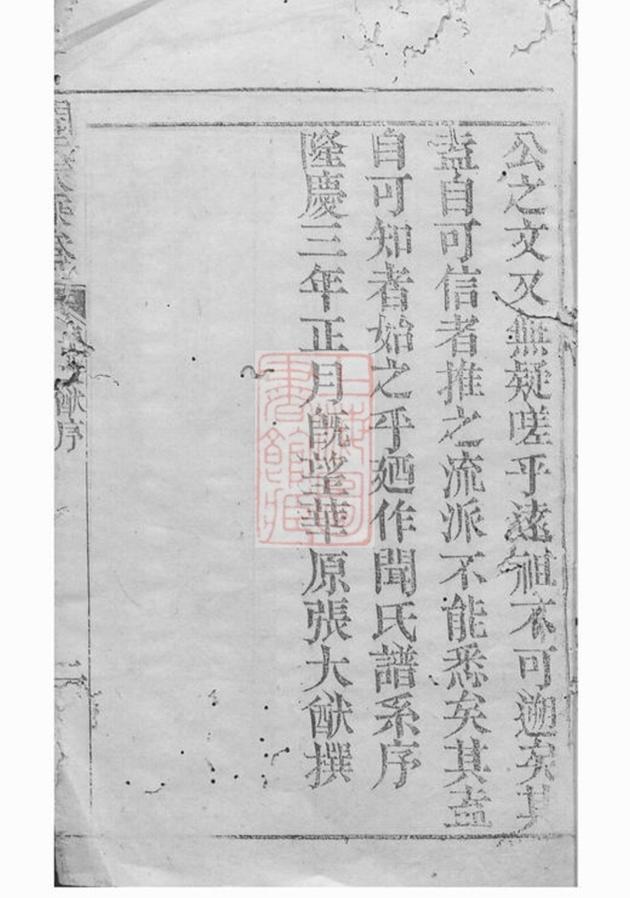 公之文又無疑嗟乎遠祖不可遡矣其
盍自可信者推之流派不能悉矣其盍
自可知者始之乎廼作聞氏譜系序
隆慶三年正月旣望華原張大猷撰
上海圖書館藏
猷序
二